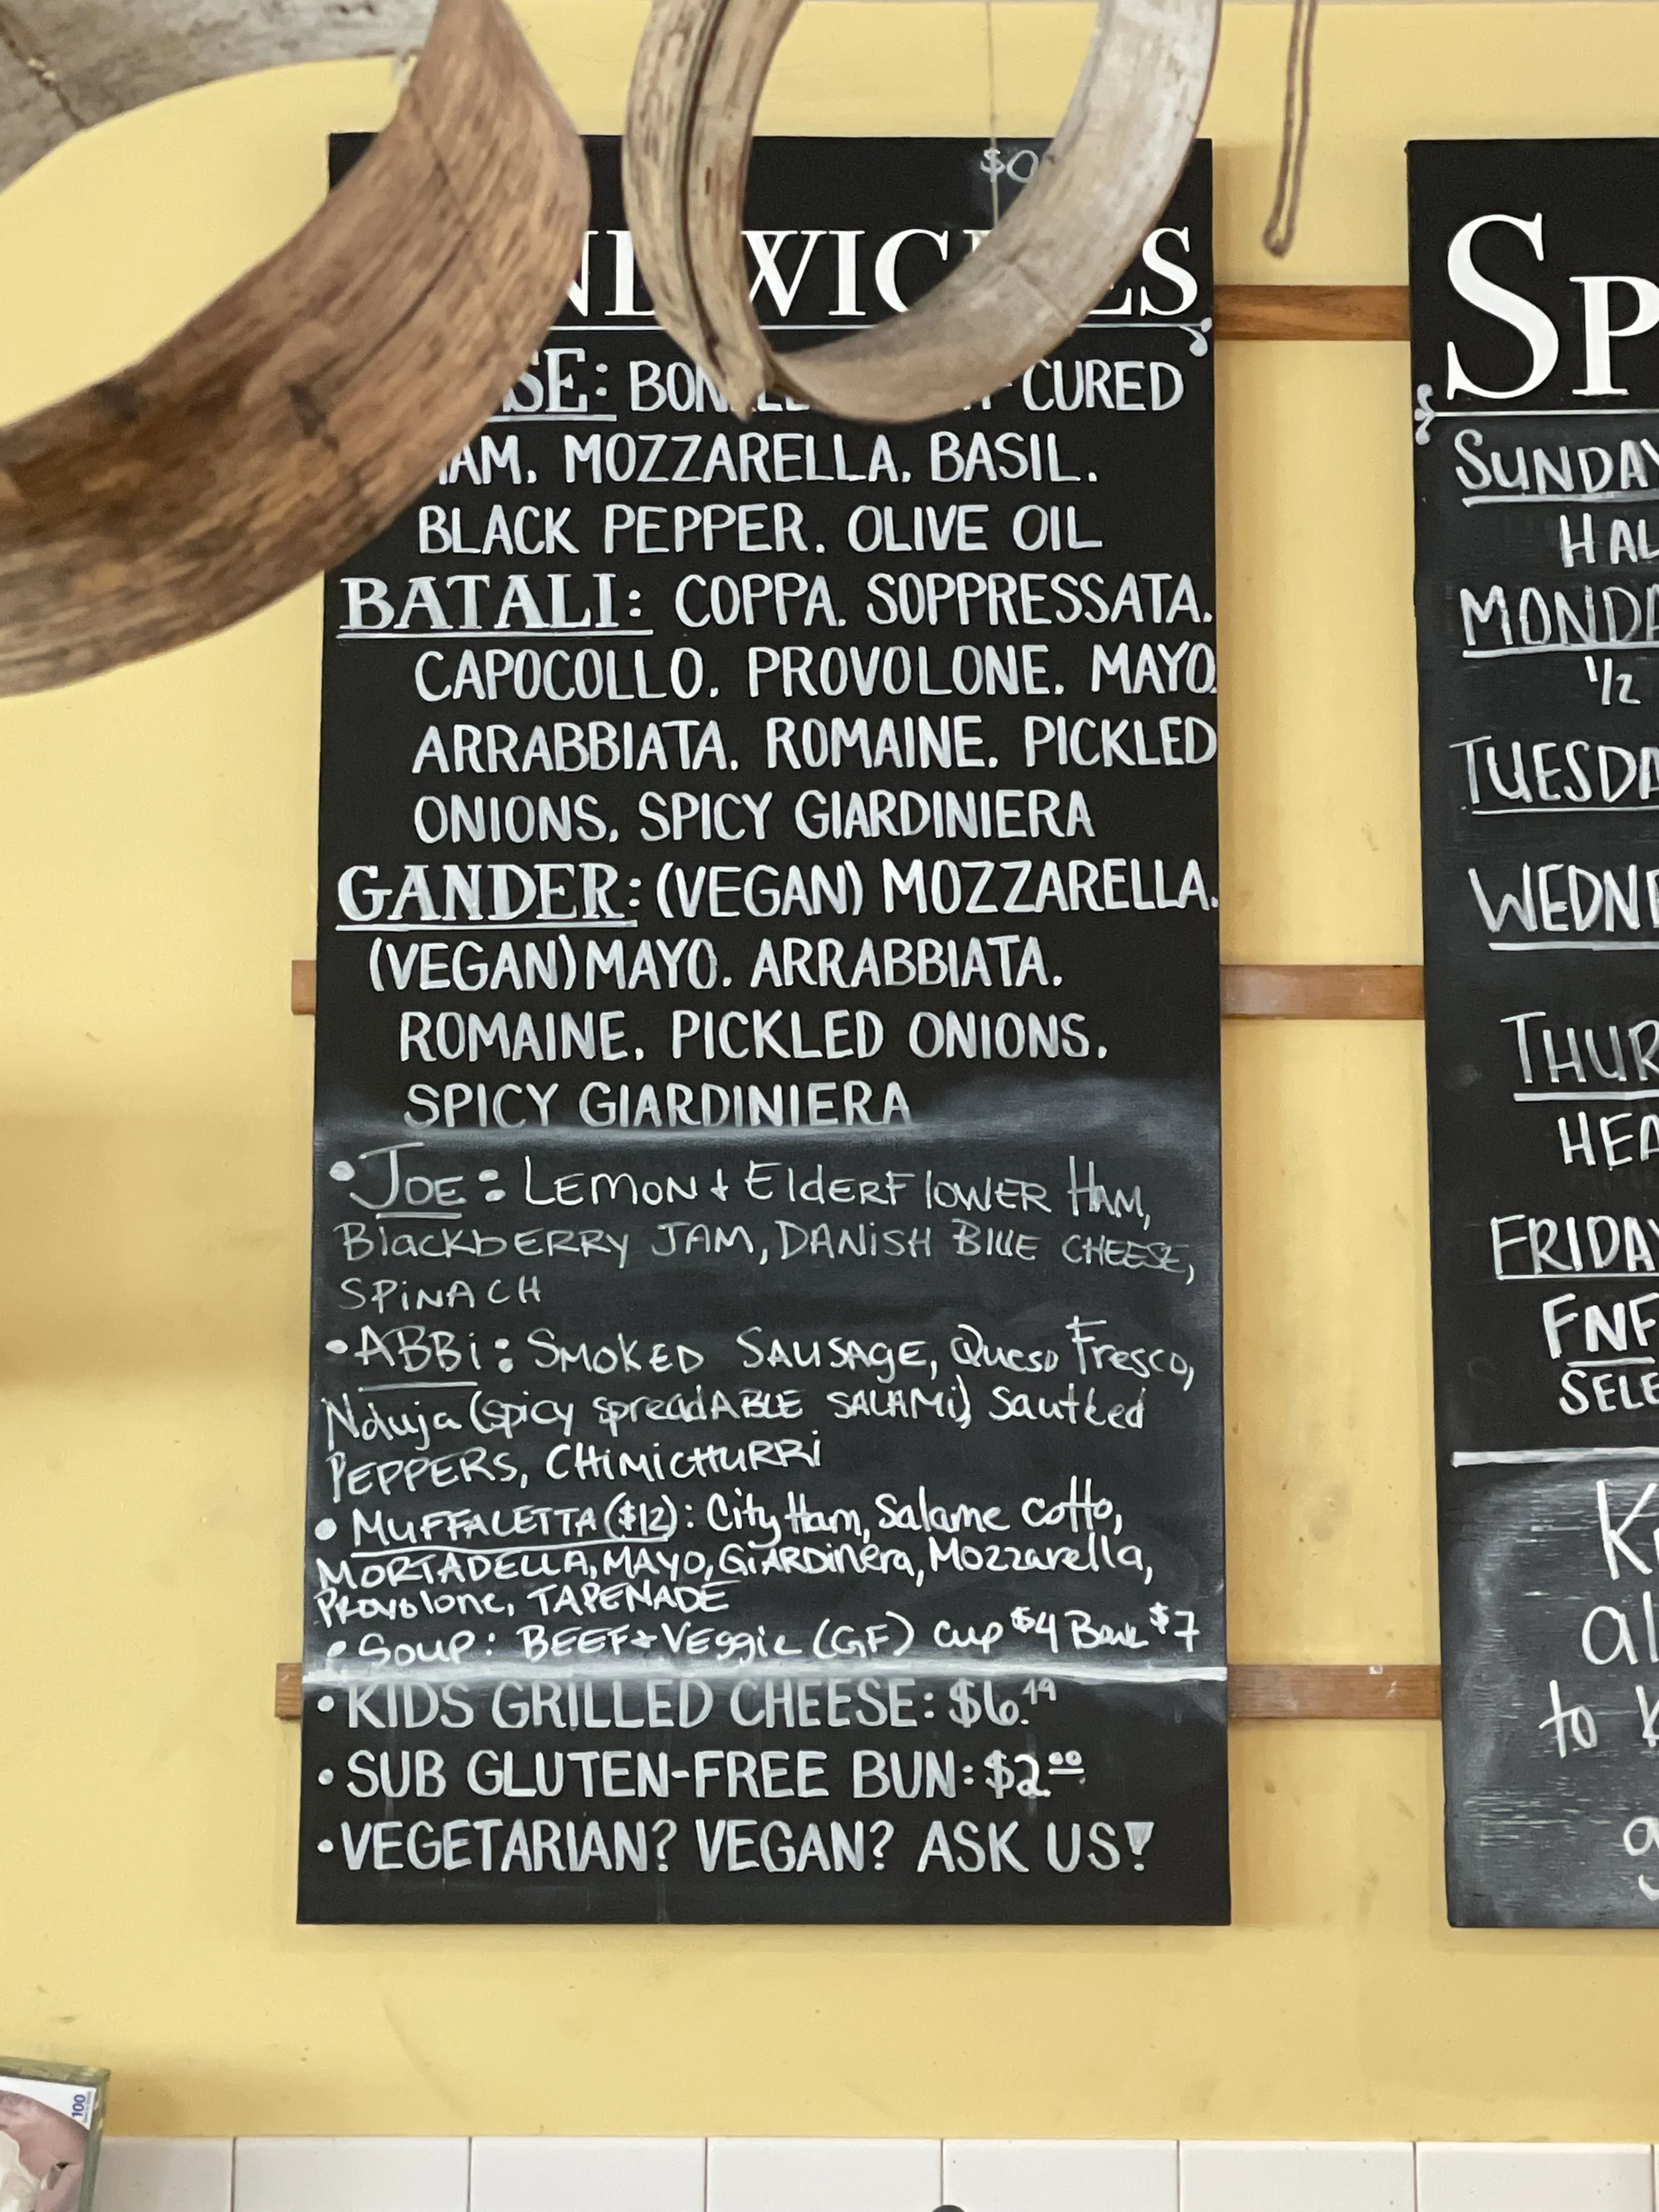 $0
SE: CURED
MOZZARELLA. BASIL.
BLACK PEPPER. OLIVE OIL
BATALI: COPPA. SOPPRESSATA.
CAPOCOLLO. PROVOLONE. MAYO.
ARRABBIATA. ROMAINE. PICKLED
ONIONS. SPICY GIARDINIERA
GANDER: (VEGAN) MOZZARELLA.
(VEGAN) MAYO. ARRABBIATA.
ROMAINE. PICKLED ONIONS.
SPICY GIARDINIERA
• JOE: LEMON + ELDERFLOWER HAM,
BLACKBERRY JAM, DANISH BLUE CHEESE,
SPINACH
• ABBi: SMOKED SAUSAGE, Queso Fresco,
Nduja (spicy spreadABLE SALAMi) Sauteed
PEPPERS, CHiMiCHURRi
• MUFFALETTA ($12): City Ham, Salame Cotto,
MORTADELLA, MAYO, GiARDinera, Mozzarella,
Provolone, TAPENADE
• Soup: BEEF + Veggie (GF) Cup $4 Bowl $7
• KIDS GRILLED CHEESE: $6.49
• SUB GLUTEN-FREE BUN: $2.00
• VEGETARIAN? VEGAN? ASK US!
SP
SUNDAY
HAL
MONDA
1/2
TUESDA
WEDNE
THUR
HEA
FRIDAY
FNF
SELE
al
to
100